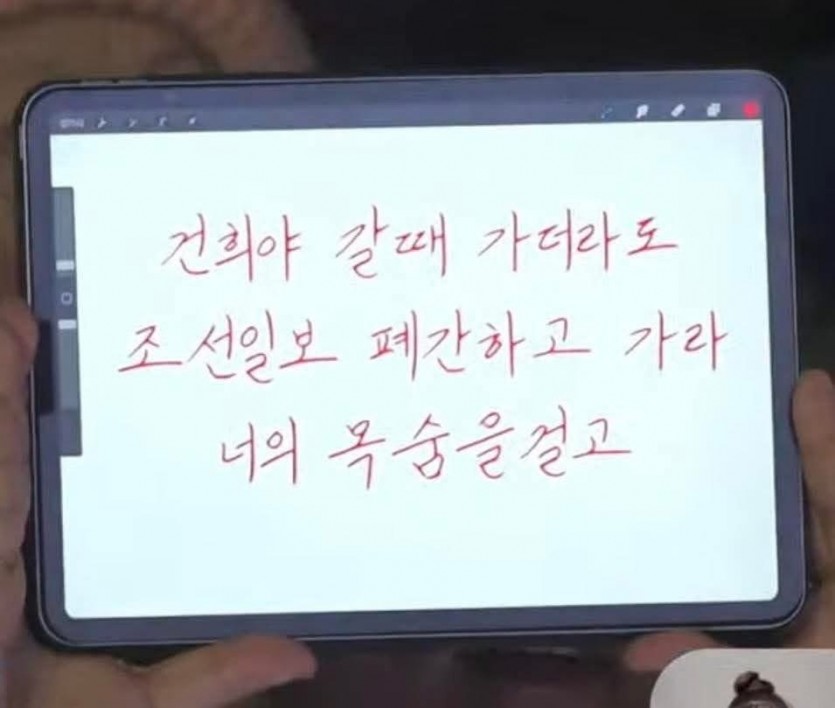 건희야 갈때 가더라도
조선일보 폐간하고 가라
너의 목숨을걸고